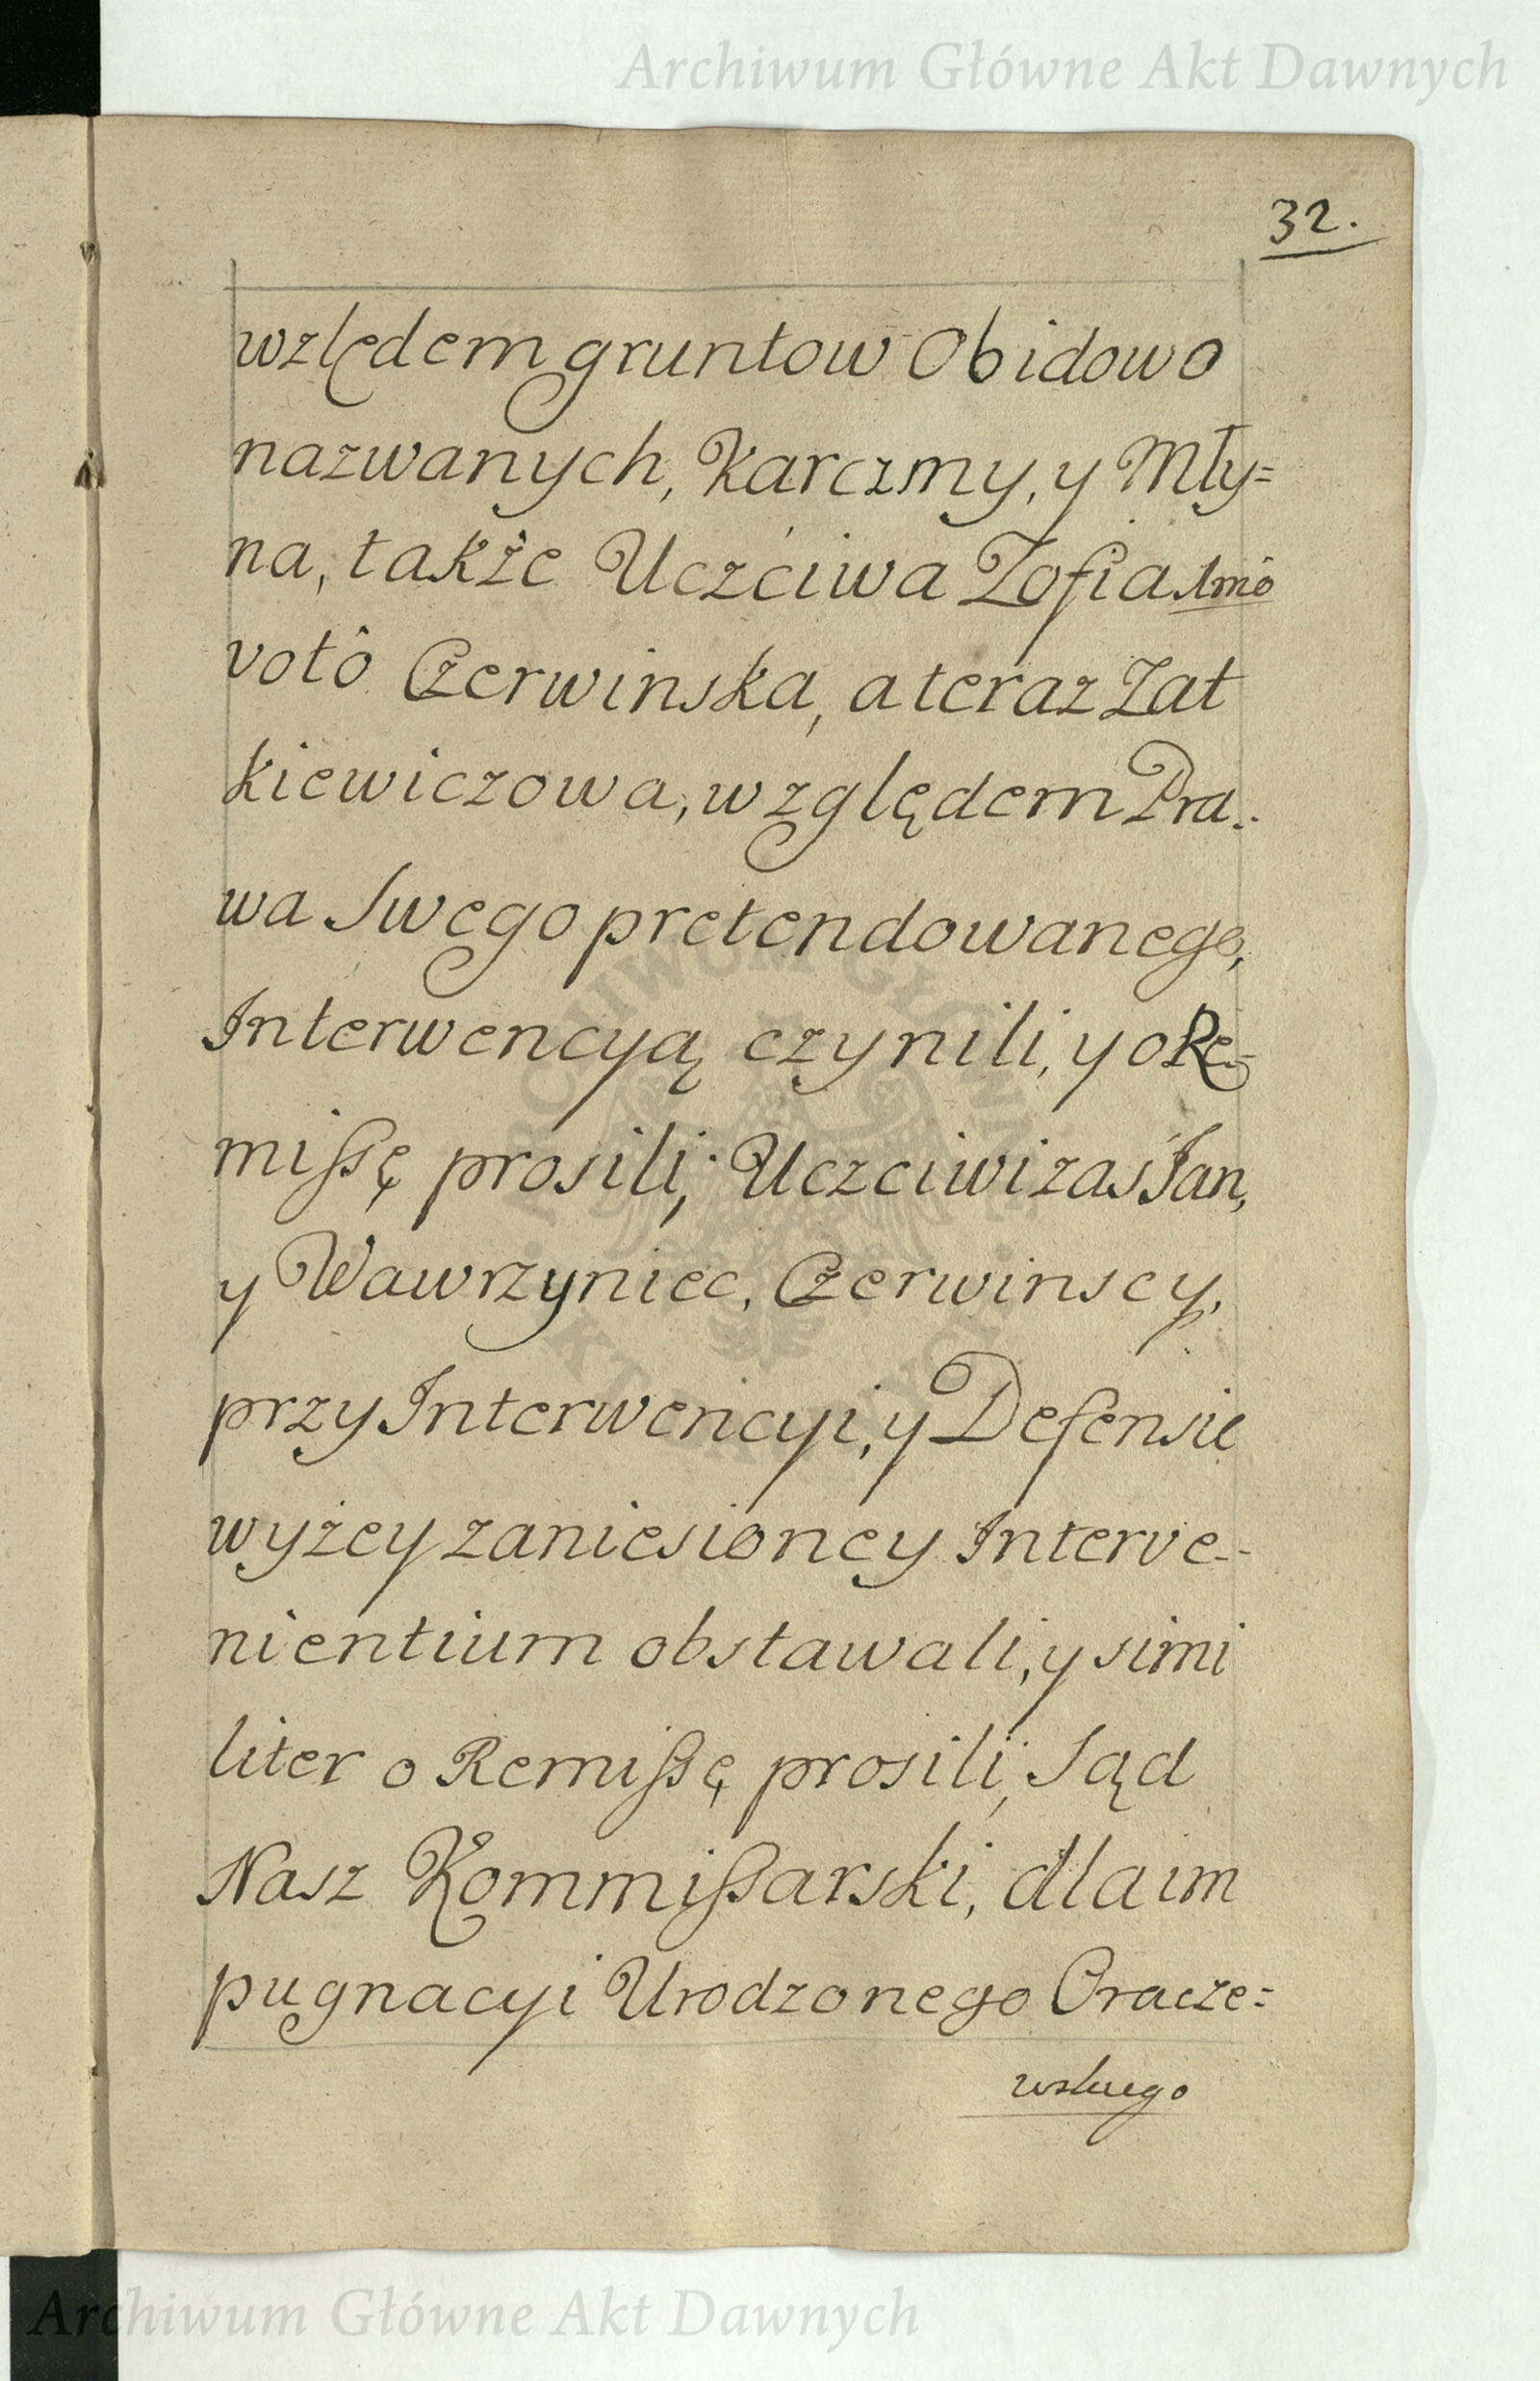 Archiwum Główne Akt Dawnych
32.
wzlędem gruntow Obidowo
nazwanych, Karczmy, y Mły=
na, także Uczćiwa Zofia 1mô
votô Czerwinska, a teraz Zat
kiewiczowa, względem Pra..
wa Swego pretendowanego,
Interwencyą czynili, y o Re-
missę prosili; Uczciwi zaś Jan,
y Wawrzyniec, Czerwinscy,
przy Interwencyi, y Defensie
wyżey zaniesioney Interve--
nientium obstawali, y simi
liter o Remissę prosili, Sąd
Nasz Kommissarski, dla im
pugnacyi Urodzonego Oracze=
wskiego
Archiwum Główne Akt Dawnych